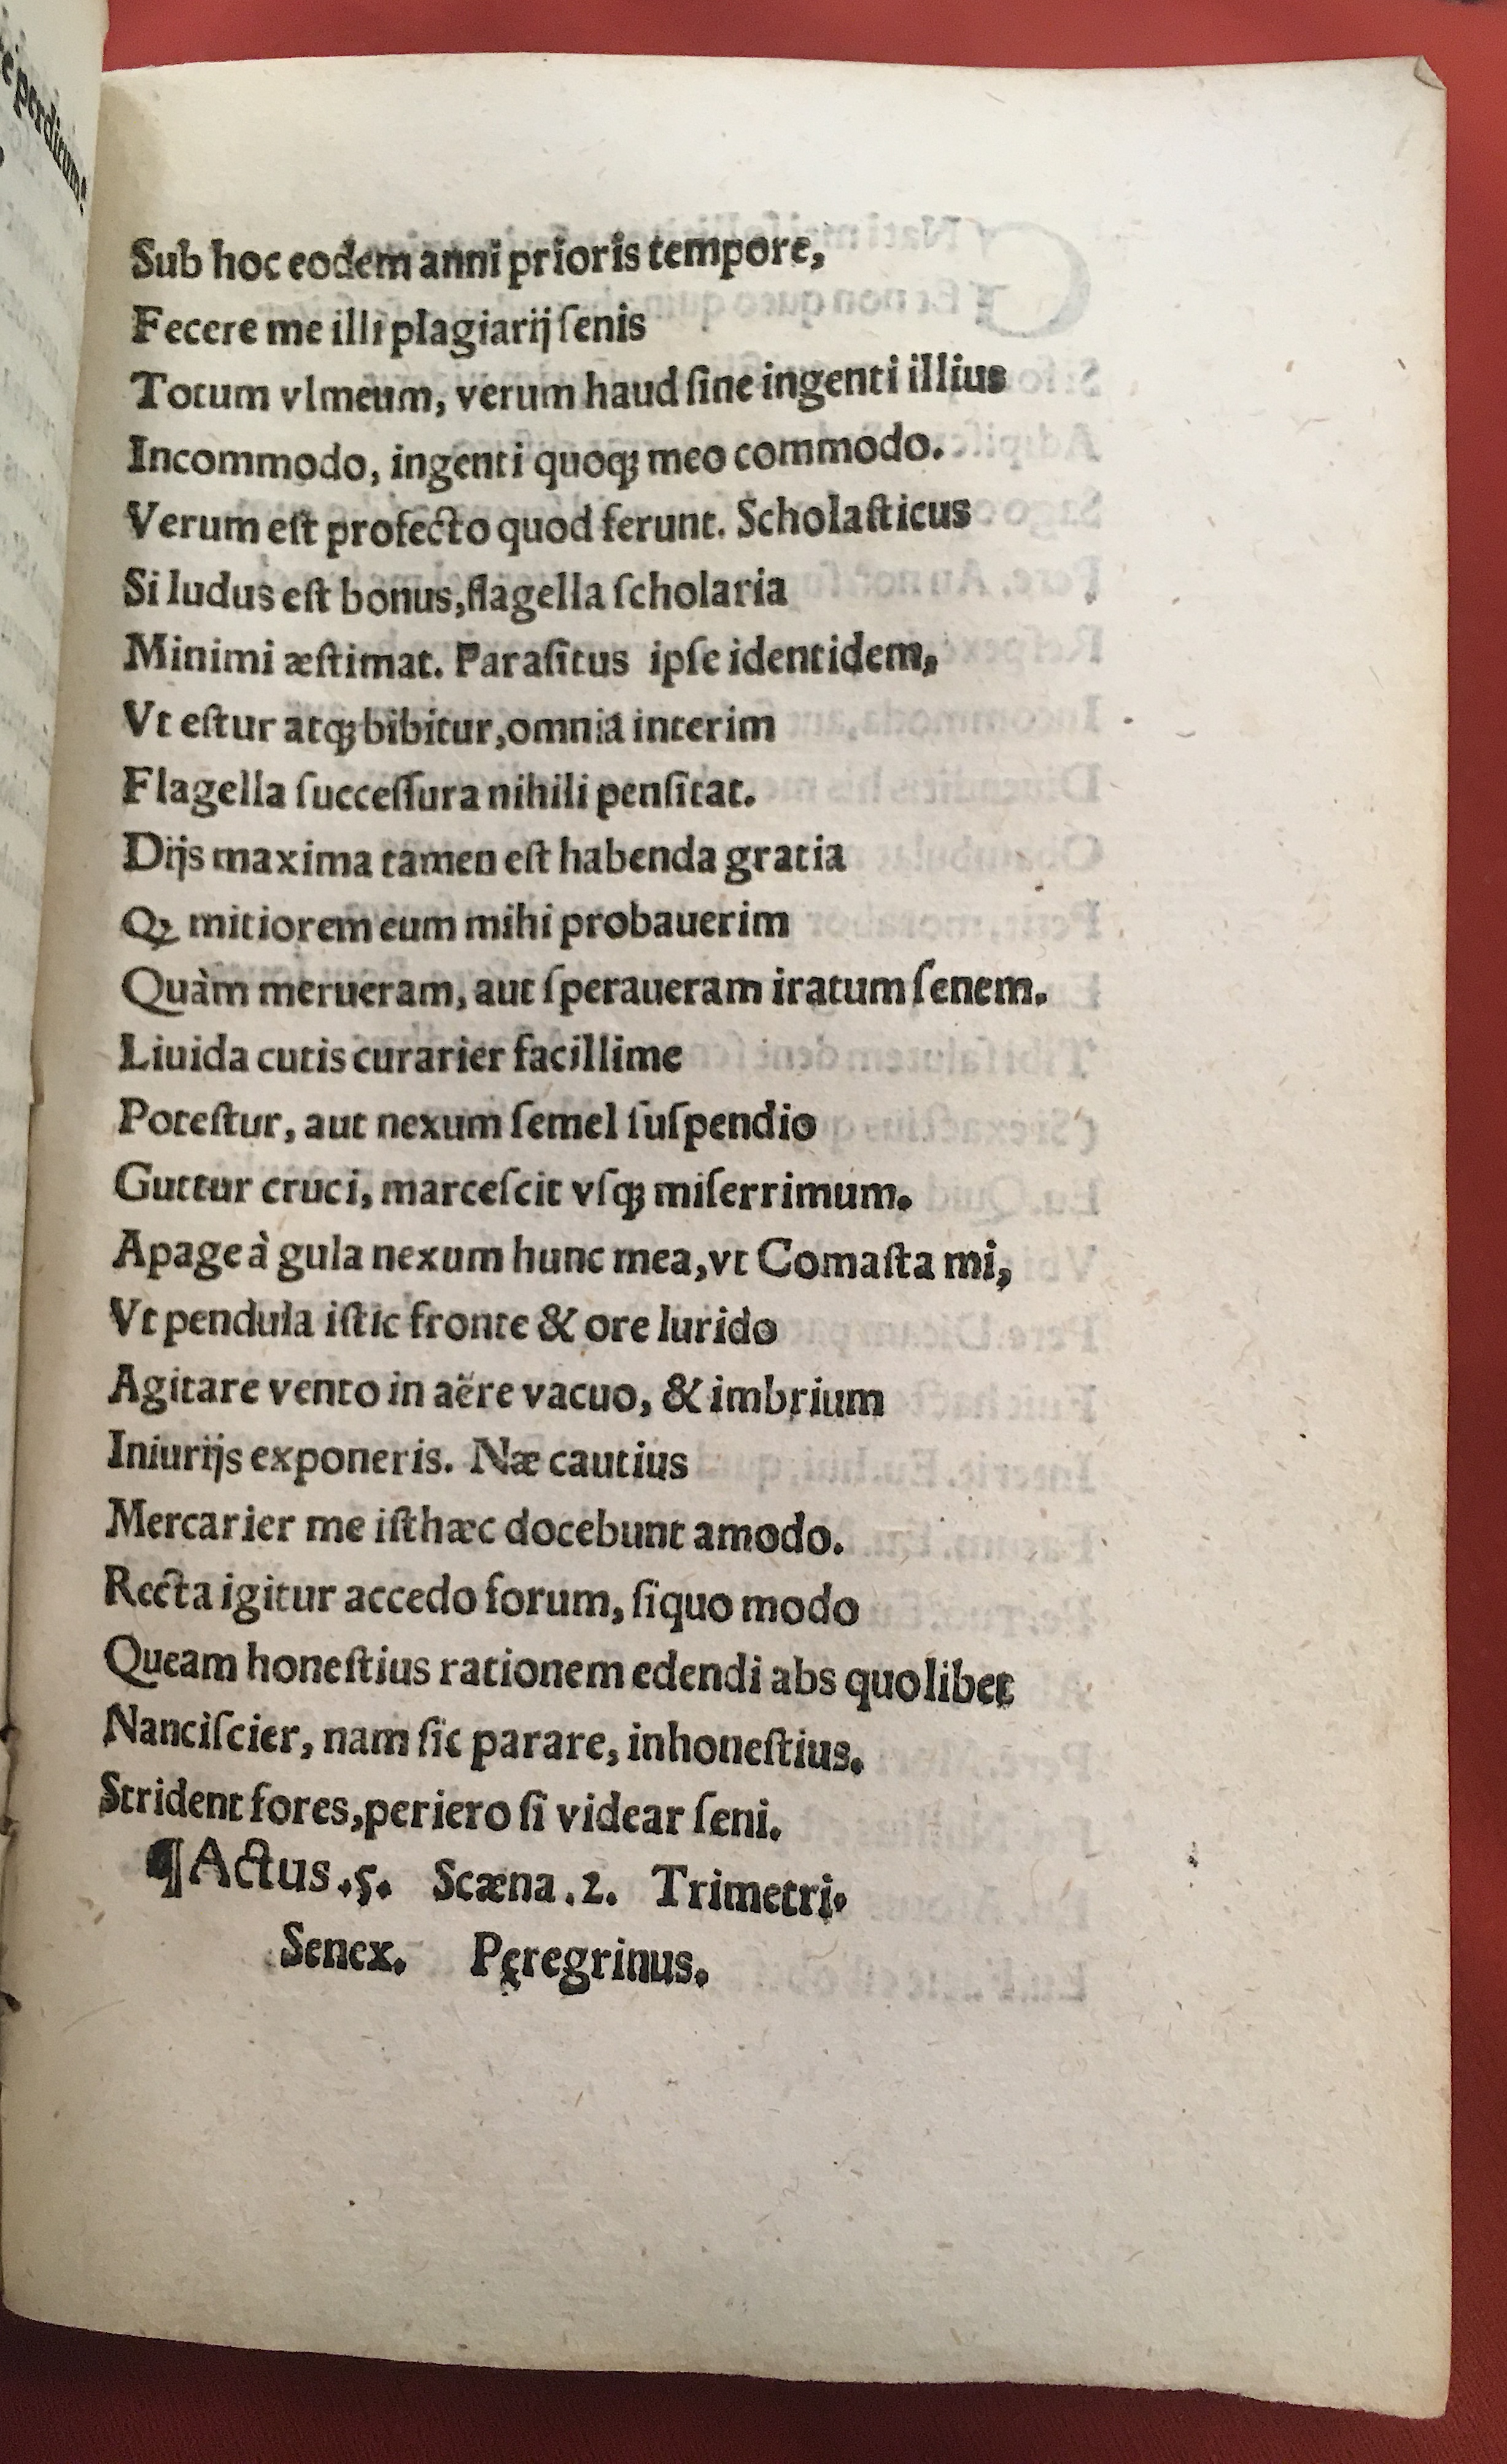 perditum!
Sub hoc eodem anni prioris tempore,
Fecere me illi plagiarij ſenis
Totum vlmeum, verum haud ſine ingenti illius
Incommodo, ingenti quoq; meo commodo.
Verum eſt profecto quod ferunt. Scholaſticus
Si ludus eſt bonus, flagella ſcholaria
Minimi æſtimat. Paraſitus ipſe identidem,
Vt eſtur atq; bibitur, omnia interim
Flagella ſucceſſura nihili penſitat.
Dijs maxima tamen eſt habenda gratia
Qꝫ mitiorem eum mihi probauerim
Quàm merueram, aut ſperaueram iratum ſenem.
Liuida cutis curarier facillime
Poteſtur, aut nexum ſemel ſuſpendio
Guttur cruci, marceſcit vſq; miſerrimum.
Apage à gula nexum hunc mea, vt Comaſta mi,
Vt pendula iſtic fronte & ore lurido
Agitare vento in aëre vacuo, & imbrium
Iniurijs exponeris. Næ cautius
Mercarier me iſthæc docebunt amodo.
Recta igitur accedo forum, ſiquo modo
Queam honeſtius rationem edendi abs quolibet
Nanciſcier, nam ſic parare, inhoneſtius.
Strident fores, periero ſi videar ſeni.
¶ Actus .5. Scæna .2. Trimetri.
Senex. Peregrinus.